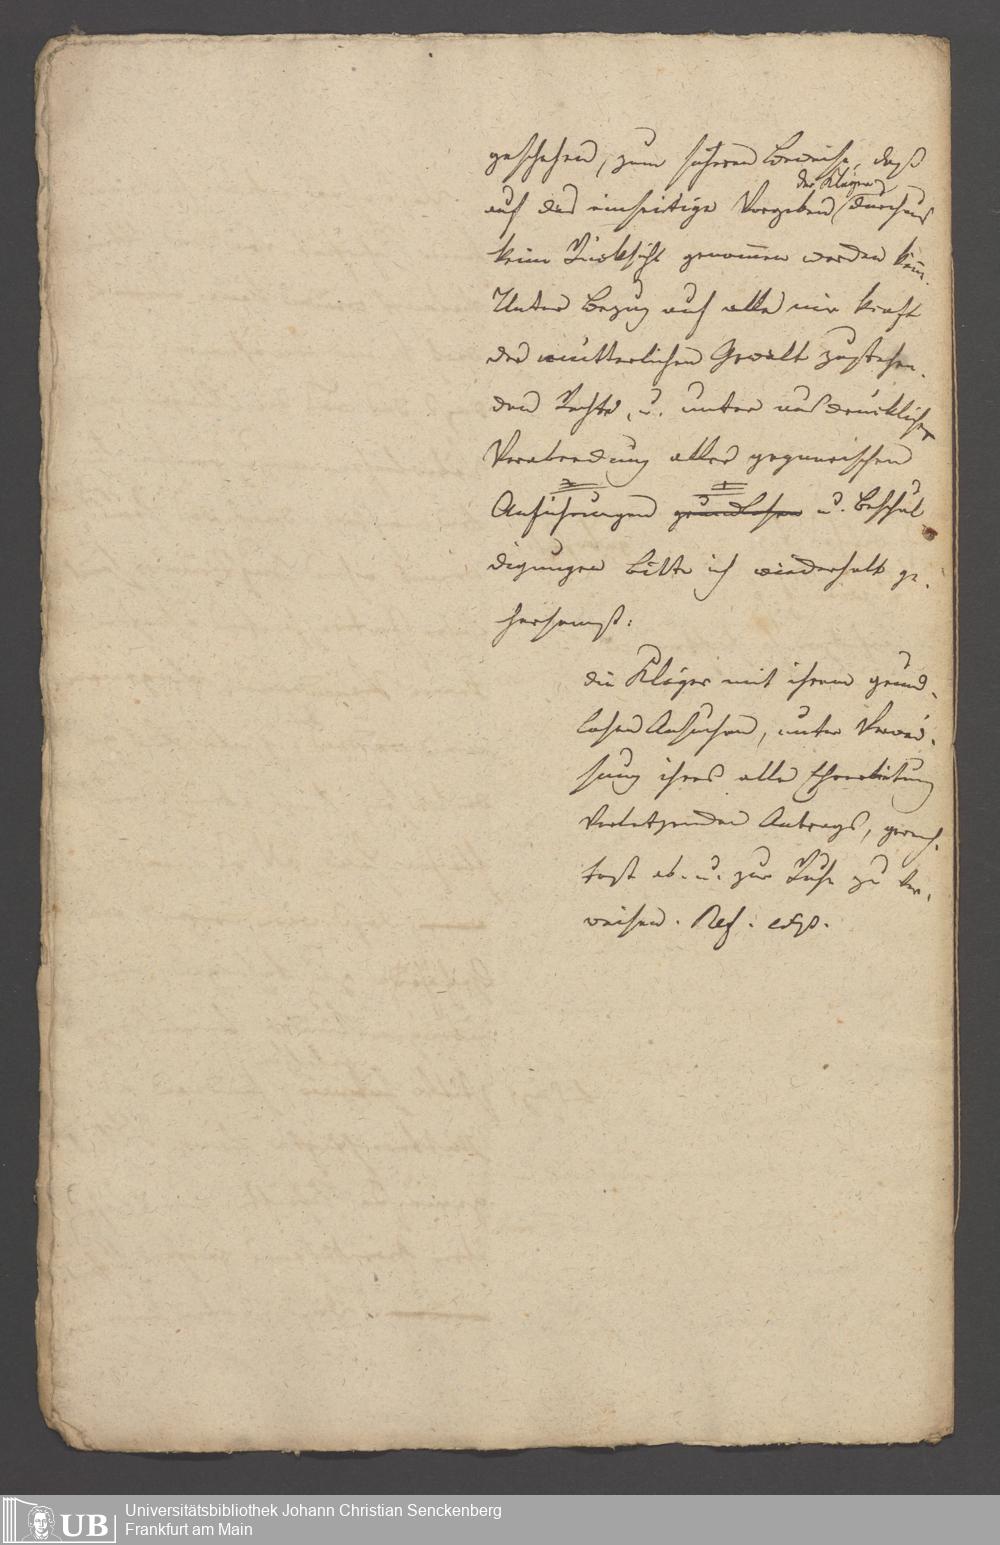 geschehen, zum sichern Beweise, daß
auf das einseitige Vorgeben der Kläger durchaus
keine Rücksicht genommen werden kann.
Unter Bezug auf alle mir kraft
der mütterlichen Gewalt zustehen-
den Rechte, u. unter ausdrücklicher
Verabredung aller gegnerischen
Anführungen grundlosen u. Beschul
digungen bitte ich wiederholt ge-
horsamst:
die Kläger mit ihrem grund-
losen Ansuchen, unter Verwei-
sung ihres alle Ehrerbietung
verletzenden Antrags, gerech-
test ab- u. zur Ruhe zu ver-
weisen. Ref. exp.
Universitätsbibliothek Johann Christian Senckenberg
Frankfurt am Main
UB